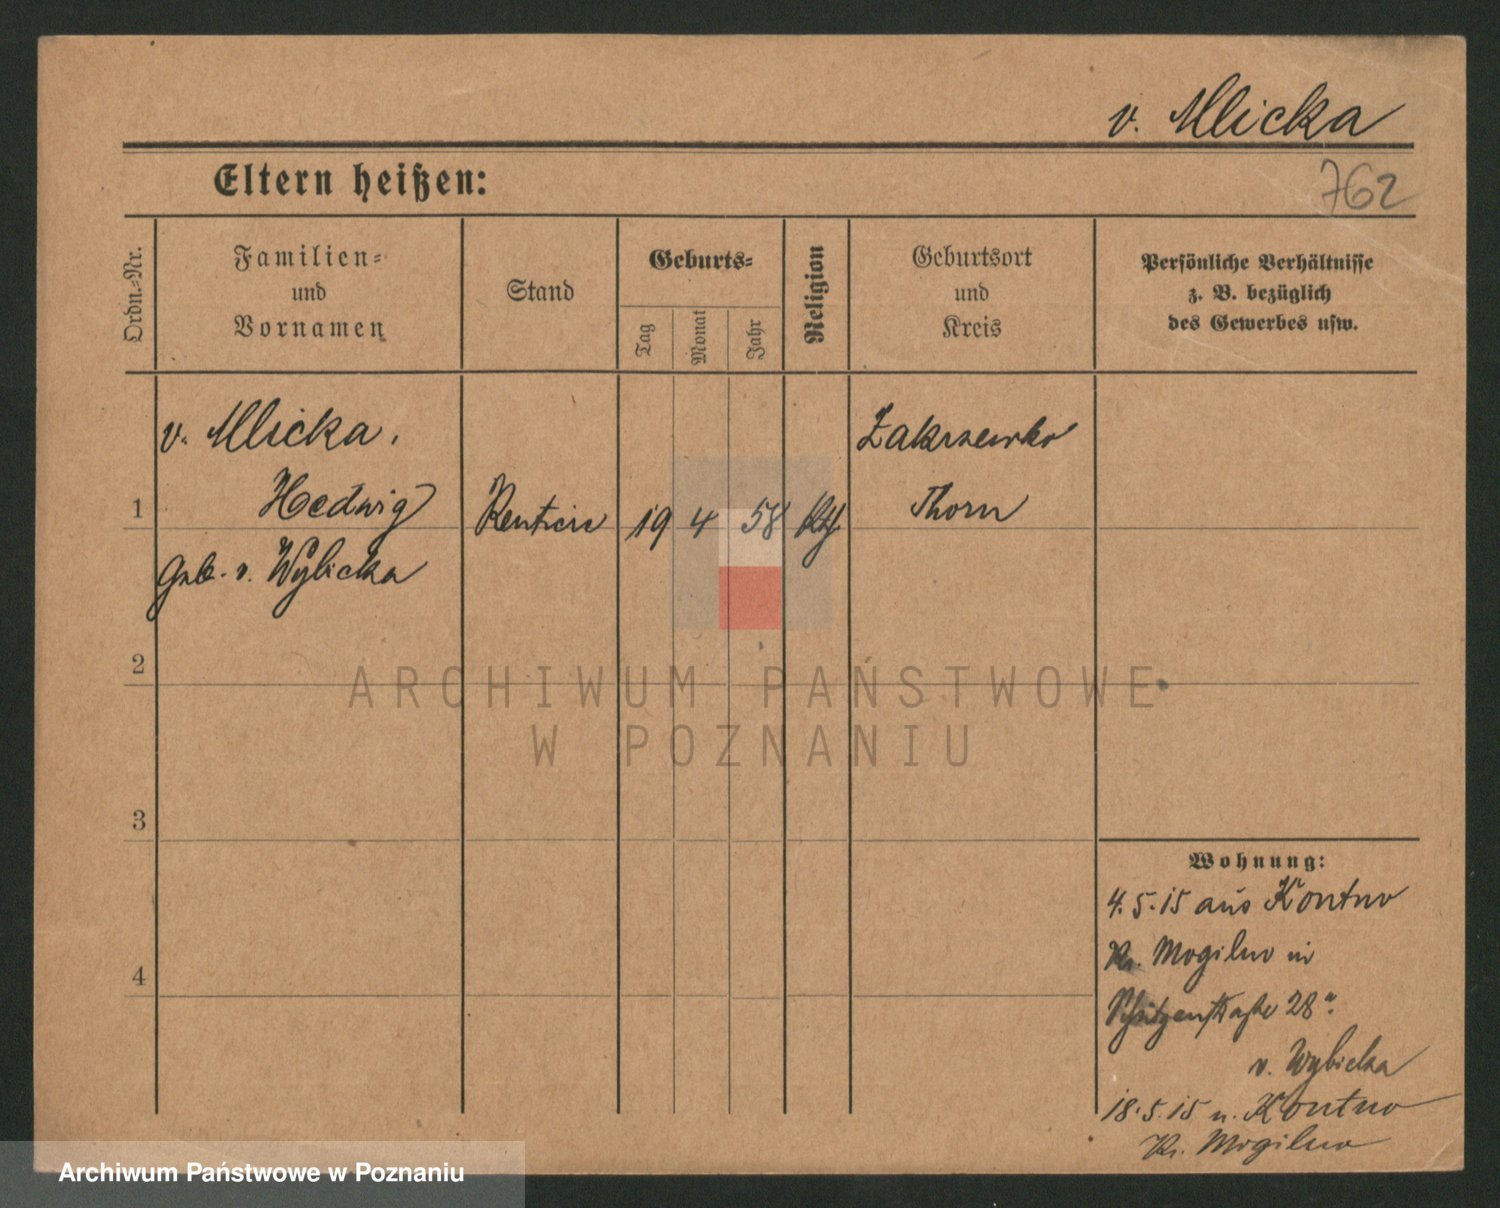 v. Mlicka
Eltern heißen:
762
Ordn.=Nr.
Familien=
und
Vornamen
Stand
Geburts=
Tag
Monat
Jahr
Religion
Geburtsort
und
Kreis
Persönliche Verhältnisse
z. B. bezüglich
des Gewerbes usw.
v. Mlicka,
Hedwig
geb. v. Wybicka
1
Rentiere
19
4
58
Kth
Zakrzewko
Thorn
2
3
4
Wohnung:
4.5.15 aus Kontno
Kr. Mogilno in
Schützenstraße 28a.
v. Wybicka
18.5.15 n. Kontno
Kr. Mogilno
ARCHIWUM PAŃSTWOWE
W POZNANIU
Archiwum Państwowe w Poznaniu